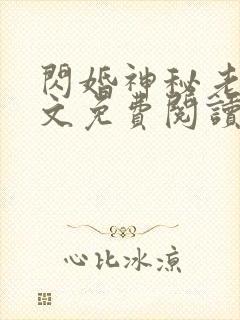 閃婚神秘老
文免費閱讀
心比冰涼